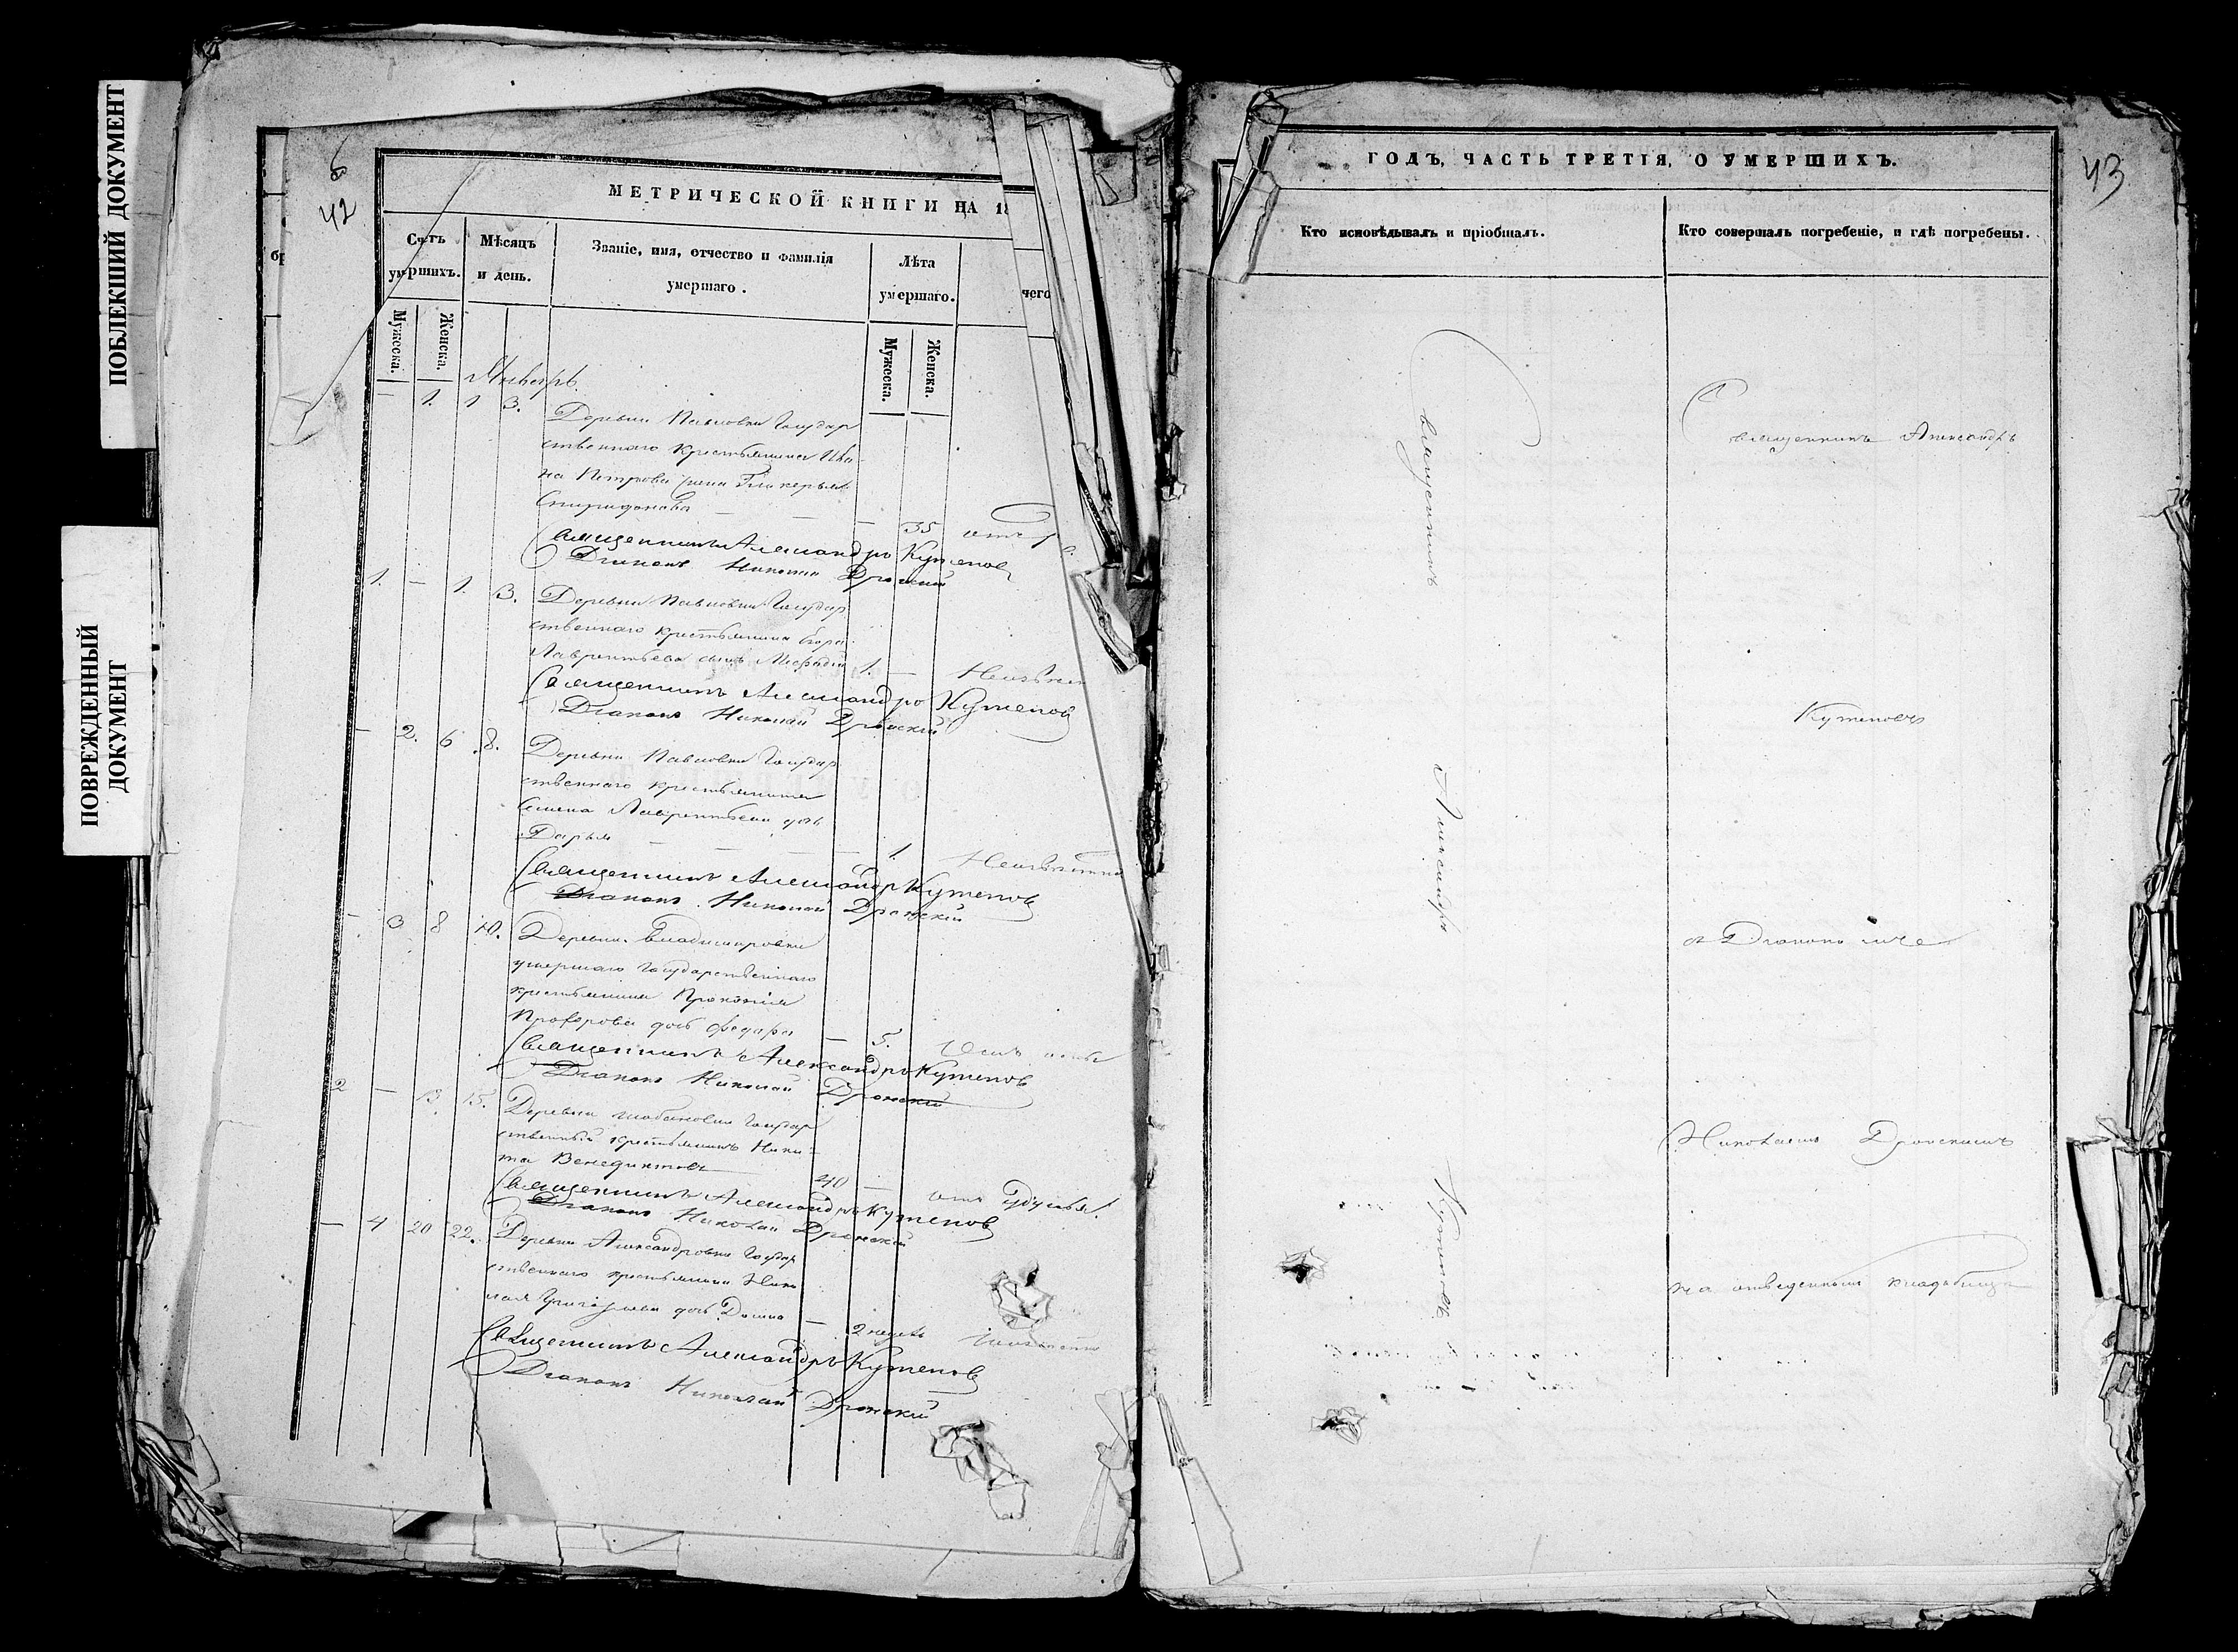 ПОБЛЕКШИЙ ДОКУМЕНТ
ПОВРЕЖДЕННЫЙ
ДОКУМЕНТ
6
42
МЕТРИЧЕСКОЙ КНИГИ НА 18
Мѣсяцъ
и день.
Званіе, имя, отчество и фамилія
умершаго.
Лѣта
умершаго.
чего
Мужеска.
Женска.
Мужеска.
Женска.
Январь.
— 1. 1 3. Деревни Павловки Государ
ственнаго крестьянина Ива
на Петрова жена Гликерья
Спиридонова — — — 35 отъ
Священникъ Александръ Кутепов
Діаконъ Николай Дронский
1. — 1. 3. Деревни Павловки Государ
ственнаго крестьянина Егора
Лаврентьева сынъ 1. —
Священникъ Александръ Кутепов
Діаконъ Николай Дронскій
— 2. 6 8. Деревни Павловки Государ
ственнаго крестьянина
Семена Лаврентьева дочь
Дарья — — — — 1. Неизвѣстно
Священникъ Александръ Кутепов
Діаконъ Николай Дронскій
— 3 8 10. Деревни Владимировки
умершаго Государственнаго
крестьянина Прокопія
дочь — 5.
Священникъ Александръ Кутепов
Діаконъ Николай Дронский
2 — 13. 15. Деревни Государ
ственный крестьянинъ Ники
та Венедиктовъ 40 — отъ удушья.
Священникъ Александръ Кутепов
Діаконъ Николай Дронский
— 4 20 22. Деревни Александровки Государ
ственнаго крестьянина Нико
лая Григорьева дочь — 2 недель
Священникъ Александръ Кутепов
Діаконъ Николай Дронский
ГОДЪ, ЧАСТЬ ТРЕТІЯ, О УМЕРШИХЪ.
43
Кто исповѣдывалъ и пріобщалъ.
Кто совершалъ погребеніе, и гдѣ погребены.
Священникъ
Александръ
Кутеповъ
Священникъ Александръ
Кутеповъ
съ Діакономъ
Николаемъ Дронскимъ
на отведенномъ кладбище